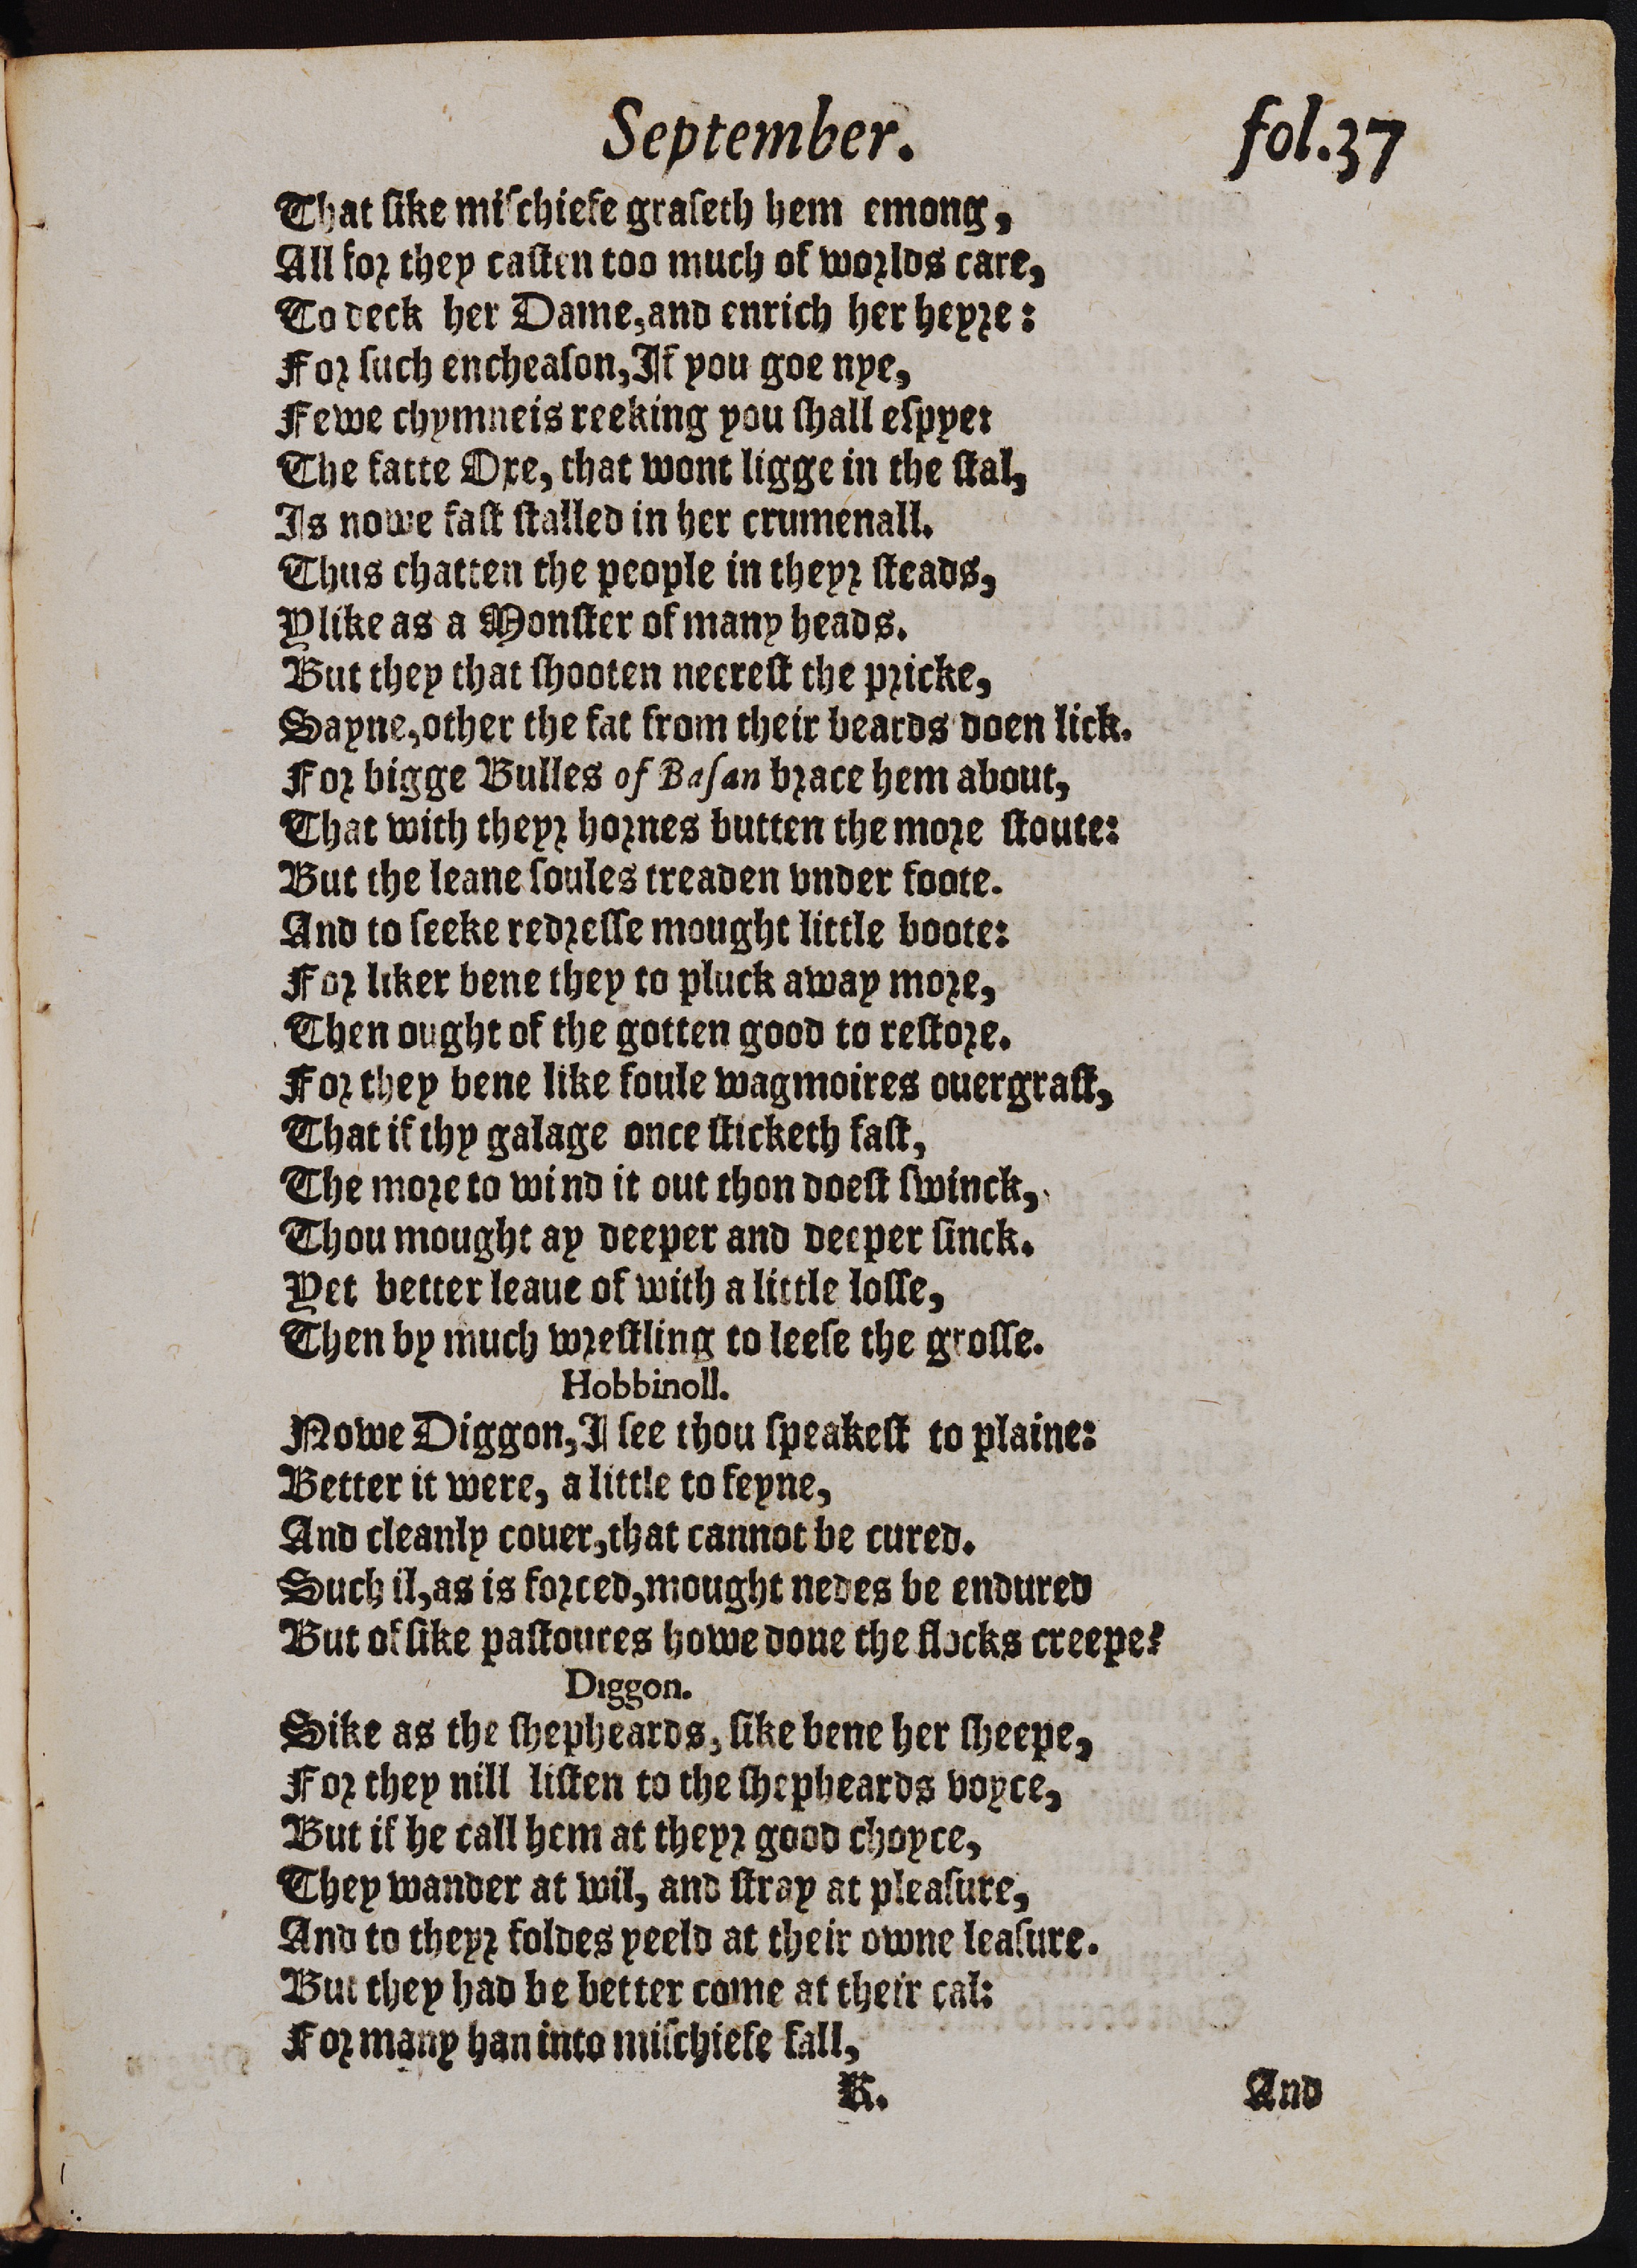 September. fol.37
That ſike miſchiefe graſeth hem emong,
All for they caſten too much of worlds care,
To deck her Dame, and enrich her heyre:
For ſuch encheaſon, If you goe nye,
Fewe chymneis reeking you ſhall eſpye:
The fatte Oxe, that wont ligge in the ſtal,
Is nowe faſt ſtalled in her crumenall.
Thus chatten the people in theyr ſteads,
Ylike as a Monſter of many heads.
But they that ſhooten neereſt the pricke,
Sayne, other the fat from their beards doen lick.
For bigge Bulles of Baſan brace hem about,
That with theyr hornes butten the more ſtoute:
But the leane ſoules treaden vnder foote.
And to ſeeke redreſſe mought little boote:
For liker bene they to pluck away more,
Then ought of the gotten good to reſtore.
For they bene like foule wagmoires ouergraſt,
That if thy galage once ſticketh faſt,
The more to wind it out thon doeſt ſwinck,
Thou mought ay deeper and deeper ſinck.
Yet better leaue of with a little loſſe,
Then by much wreſtling to leeſe the groſſe.
Hobbinoll.
Nowe Diggon, I ſee thou ſpeakeſt to plaine:
Better it were, a little to feyne,
And cleanly couer, that cannot be cured.
Such il, as is forced, mought nedes be endured
But of ſike paſtoures howe done the flocks creepe?
Diggon.
Sike as the ſhepheards, ſike bene her ſheepe,
For they nill liſten to the ſhepheards voyce,
But if he call hem at theyr good choyce,
They wander at wil, and ſtray at pleaſure,
And to theyr foldes yeeld at their owne leaſure.
But they had be better come at their cal:
For many han into miſchiefe fall,
K. And